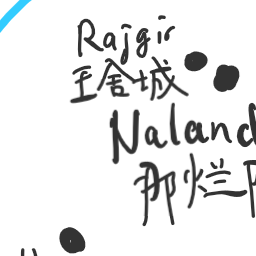 Rajgir
王舍城
Naland
那烂